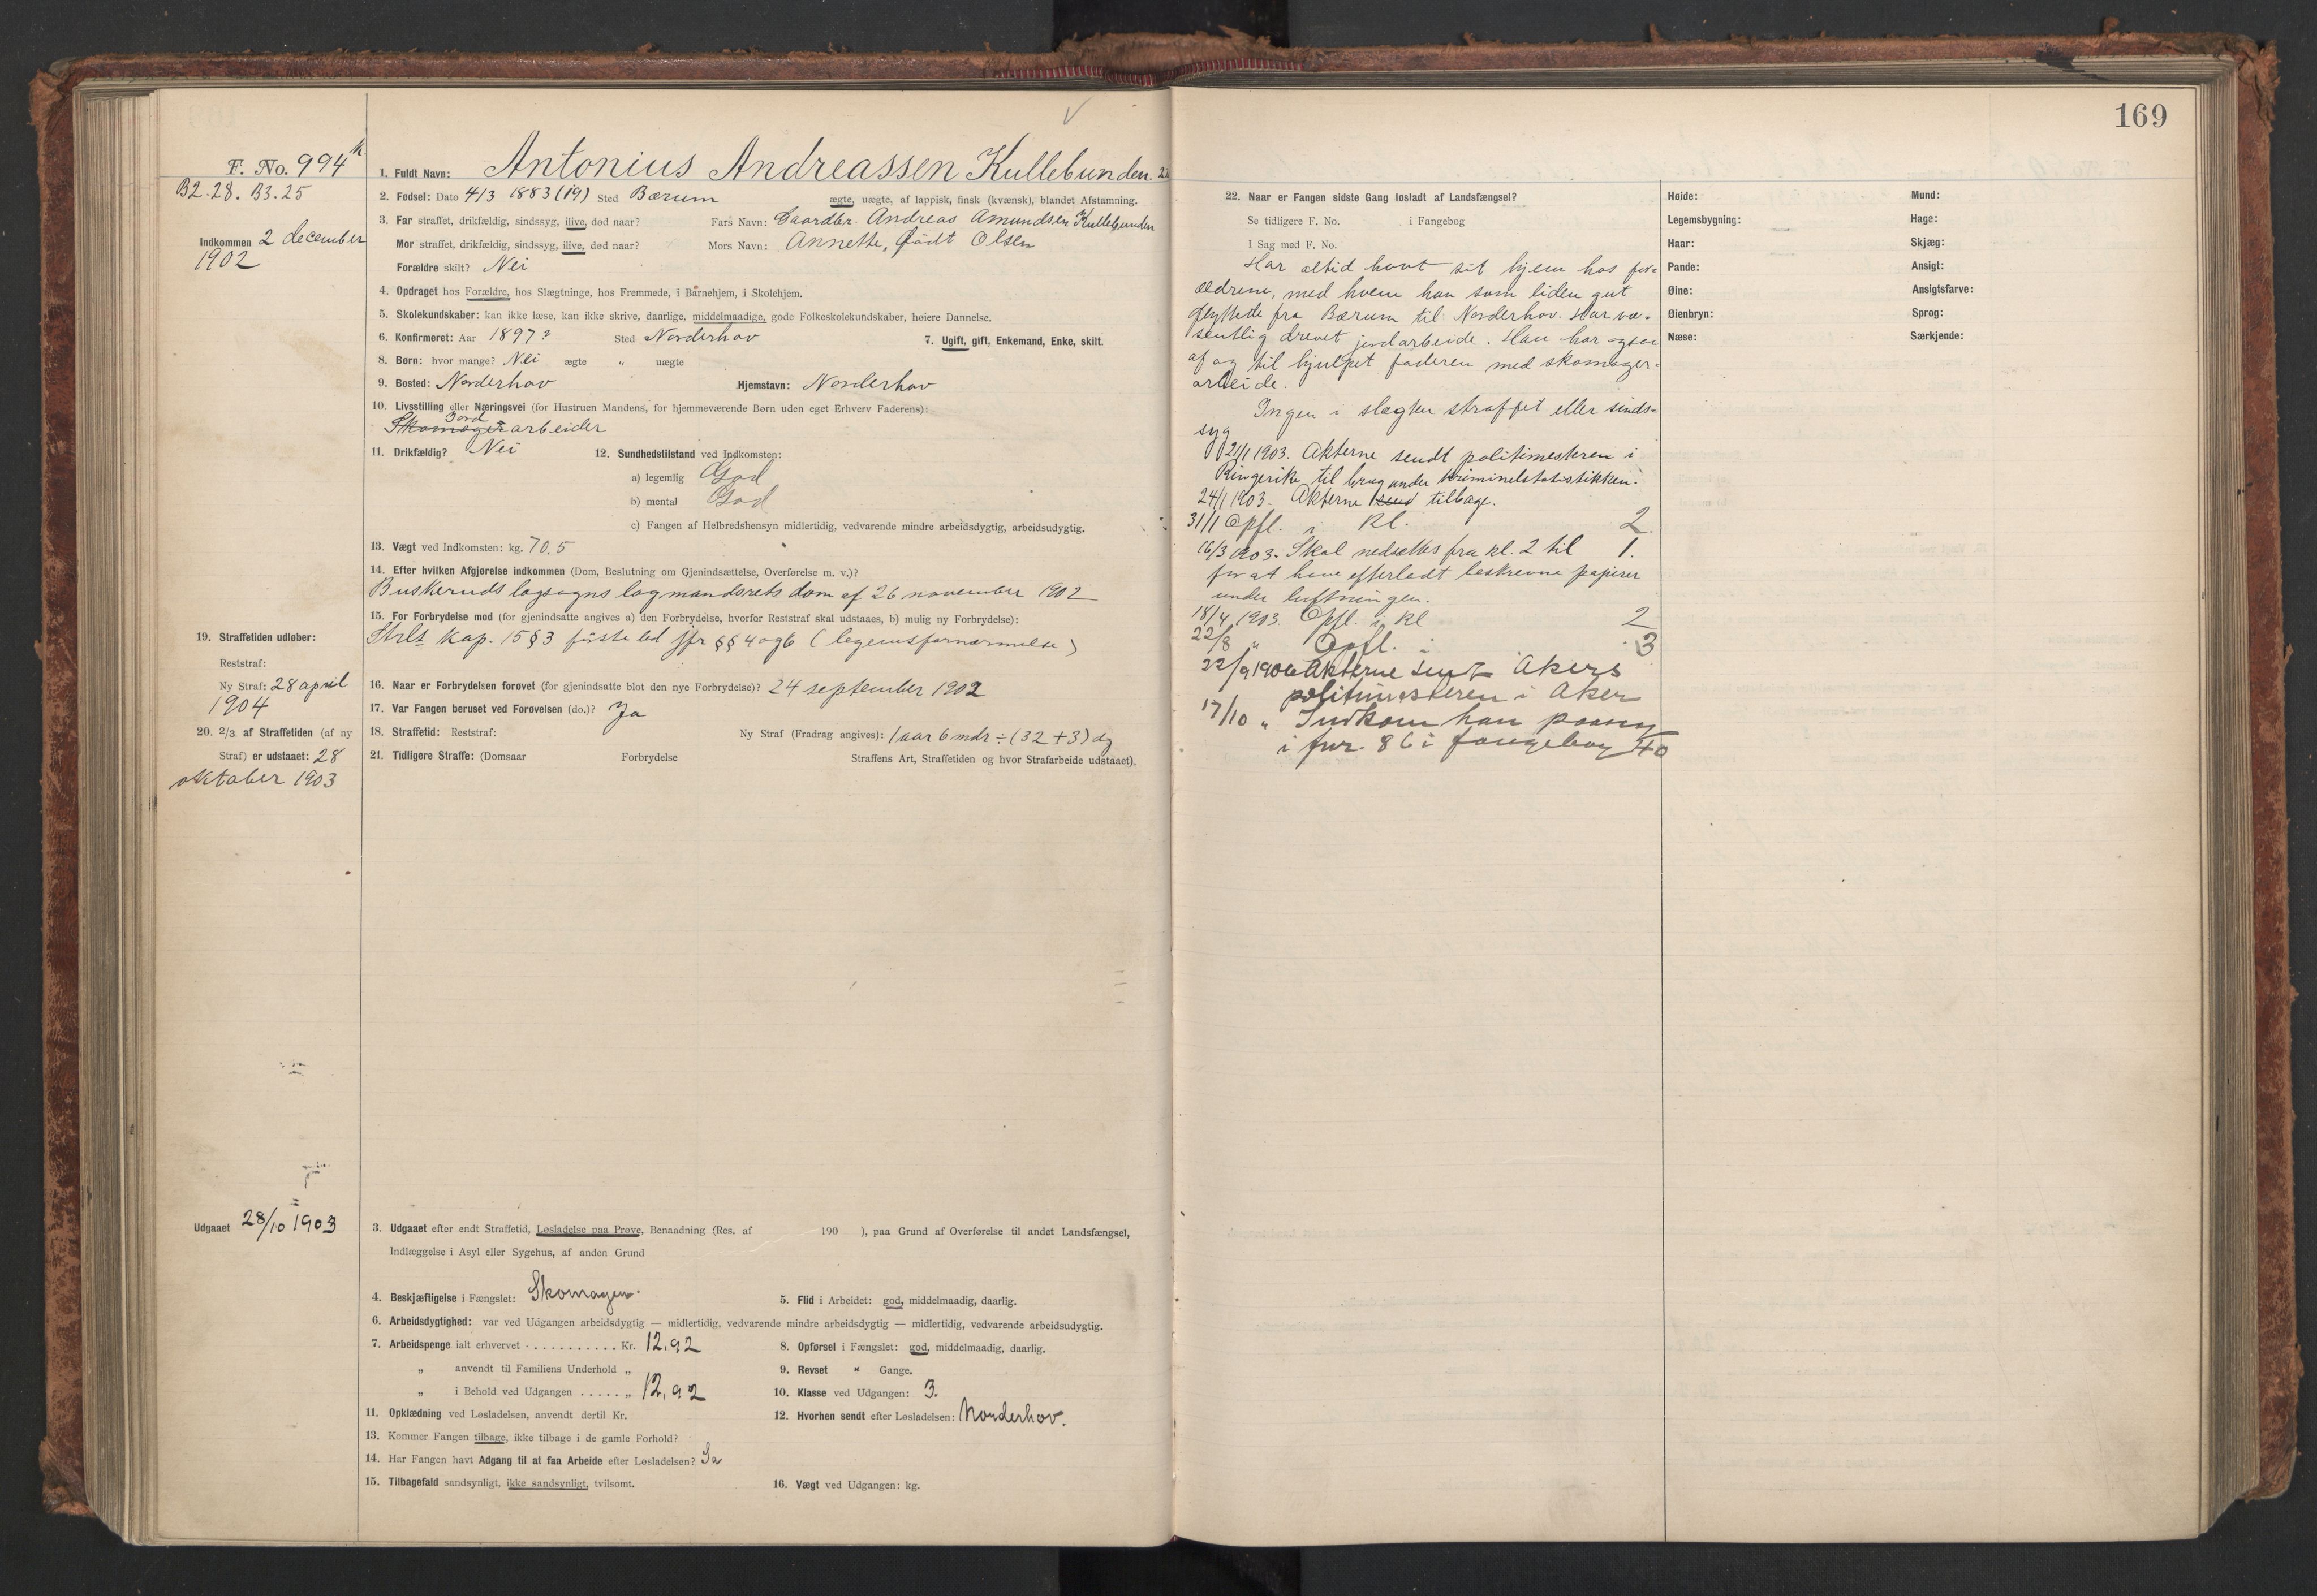 169
F. No. 994
B2.28. B3.25
Indkommen 2 december
1902
1. Fuldt Navn: Antonius Andreassen Kullebunden.
2. Fødsel: Dato 4/3 1883 (19) Sted Bærum ægte, uægte, af lappisk, finsk (kvænsk), blandet Afstamning.
3. Far straffet, drikfældig, sindssyg, ilive, død naar? Fars Navn: Gaardbr. Andreas Amundsen Kullebunden
Mor straffet, drikfældig, sindssyg, ilive, død naar? Mors Navn: Annette, født Olsen
Forældre skilt? Nei
4. Opdraget hos Forældre, hos Slægtninge, hos Fremmede, i Barnehjem, i Skolehjem.
5. Skolekundskaber: kan ikke læse, kan ikke skrive, daarlige, middelmaadige, gode Folkeskolekundskaber, høiere Dannelse.
6. Konfirmeret: Aar 1897? Sted Norderhov 7. Ugift, gift, Enkemand, Enke, skilt.
8. Børn: hvor mange? Nei ægte " uægte
9. Bosted: Norderhov Hjemstavn: Norderhov
10. Livsstilling eller Næringsvei (for Hustruen Mandens, for hjemmeværende Børn uden eget Erhverv Faderens):
Jord
Skomager arbeider
11. Drikfældig? Nei 12. Sundhedstilstand ved Indkomsten:
a) legemlig God
b) mental God
c) Fangen af Helbredshensyn midlertidig, vedvarende mindre arbeidsdygtig, arbeidsudygtig.
13. Vægt ved Indkomsten: kg. 70.5
14. Efter hvilken Afgjørelse indkommen (Dom, Beslutning om Gjenindsættelse, Overførelse m. v.)?
Buskeruds lagsogns lagmandsrets dom af 26 november 1902
15. For Forbrydelse mod (for gjenindsatte angives a) den Forbrydelse, hvorfor Reststraf skal udstaaes, b) mulig ny Forbrydelse):
Strls kap. 15 § 3 første led jfr §§ 4 og 6 (legemsfornærmelse)
16. Naar er Forbrydelsen forøvet (for gjenindsatte blot den nye Forbrydelse)? 24 september 1902
17. Var Fangen beruset ved Forøvelsen (do.)? Ja
18. Straffetid: Reststraf: Ny Straf (Fradrag angives): 1 aar 6 mdr ÷ (32 + 3) dg
21. Tidligere Straffe: (Domsaar Forbrydelse Straffens Art, Straffetiden og hvor Strafarbeide udstaaet).
19. Straffetiden udløber:
Reststraf:
Ny Straf: 28 april
1904
20. 2/3 af Straffetiden (af ny
Straf) er udstaaet: 28
oktober 1903
Udgaaet 28/10 1903
3. Udgaaet efter endt Straffetid, Løsladelse paa Prøve, Benaadning (Res. af 190 ), paa Grund af Overførelse til andet Landsfængsel,
Indlæggelse i Asyl eller Sygehus, af anden Grund
4. Beskjæftigelse i Fængslet: Skomager. 5. Flid i Arbeidet: god, middelmaadig, daarlig.
6. Arbeidsdygtighed: var ved Udgangen arbeidsdygtig — midlertidig, vedvarende mindre arbeidsdygtig — midlertidig, vedvarende arbeidsudygtig.
7. Arbeidspenge ialt erhvervet . . . . . . . . . . . Kr. 12.92 8. Opførsel i Fængslet: god, middelmaadig, daarlig.
„ anvendt til Familiens Underhold „ 9. Revset " Gange.
„ i Behold ved Udgangen . . . . . „ 12.92 10. Klasse ved Udgangen: 3.
11. Opklædning ved Løsladelsen, anvendt dertil Kr. 12. Hvorhen sendt efter Løsladelsen: Norderhov.
13. Kommer Fangen tilbage, ikke tilbage i de gamle Forhold?
14. Har Fangen havt Adgang til at faa Arbeide efter Løsladelsen? Ja
15. Tilbagefald sandsynligt, ikke sandsynligt, tvilsomt. 16. Vægt ved Udgangen: kg.
22. Naar er Fangen sidste Gang løsladt af Landsfængsel?
Se tidligere F. No. i Fangebog
I Sag med F. No.
Har altid havt sit hjem hos for=
ældrene, med hvem han som liden gut
flyttede fra Bærum til Norderhov. Har væ=
sentlig drevet jordarbeide. Han har ogsaa
af og til hjulpet faderen med skomager=
arbeide.
Ingen i slægten straffet eller sinds=
syg
21/1 1903. Akterne sendt politimesteren i
Ringerike til brug under kriminelstatistikken.
24/1 1903. Akterne send tilbage.
31/1 Opfl. i Kl. 2.
16/3 1903. Skal nedsættes fra kl. 2 til 1.
for at have efterladt beskrevne papirer
under luftningen.
18/4 1903. Opfl. i Kl 2
22/8 " Opfl. i 3
22/9 1906 Akterne sendt Akers
politimesteren i Aker
17/10 " Indkom han paany
i fnr. 86 i fangebog 40
Høide:
Legemsbygning:
Haar:
Pande:
Øine:
Øienbryn:
Næse:
Mund:
Hage:
Skjæg:
Ansigt:
Ansigtsfarve:
Sprog:
Særkjende: